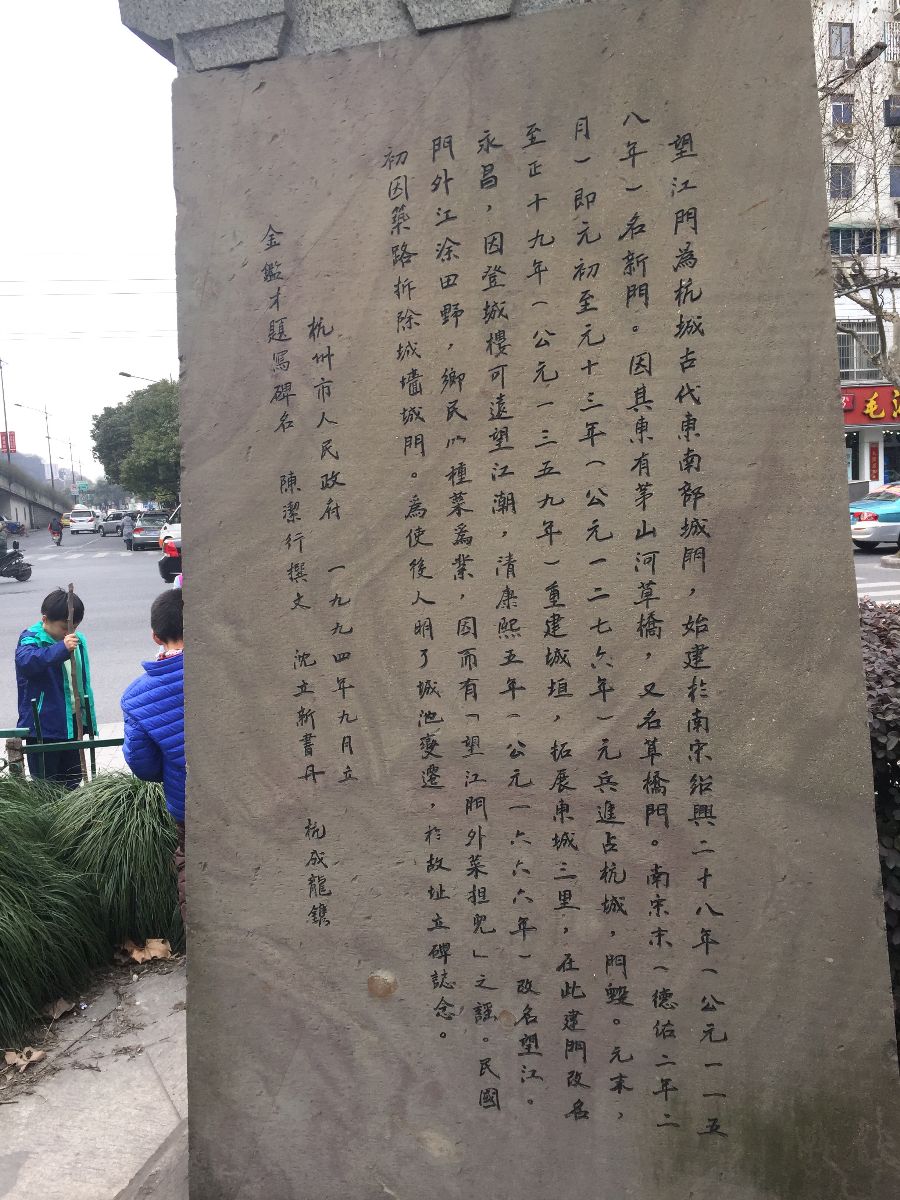 望江門為杭城古代東南部城門，始建於南宋紹興二十八年（公元一一五
八年）名新門。因其東有茅山河草橋，又名草橋門。南宋末（德佑二年二
月）即元初至元十三年（公元一二七六年）元兵進占杭城，門毀。元末，
至正十九年（公元一三五九年）重建城垣，拓展東城三里，在此建門改名
永昌，因登城樓可遠望江潮，清康熙五年（公元一六六六年）改名望江。
門外江涂田野，鄉民以種菜為業，因而有「望江門外菜担兒」之謡。民國
初因築路拆除城墻城門。為使後人明了城池變遷，於故址立碑誌念。
杭州市人民政府 一九九四年九月立
金鑑才題寫碑名 陳潔行撰文 沈立新書丹 杭成龍鐫
毛